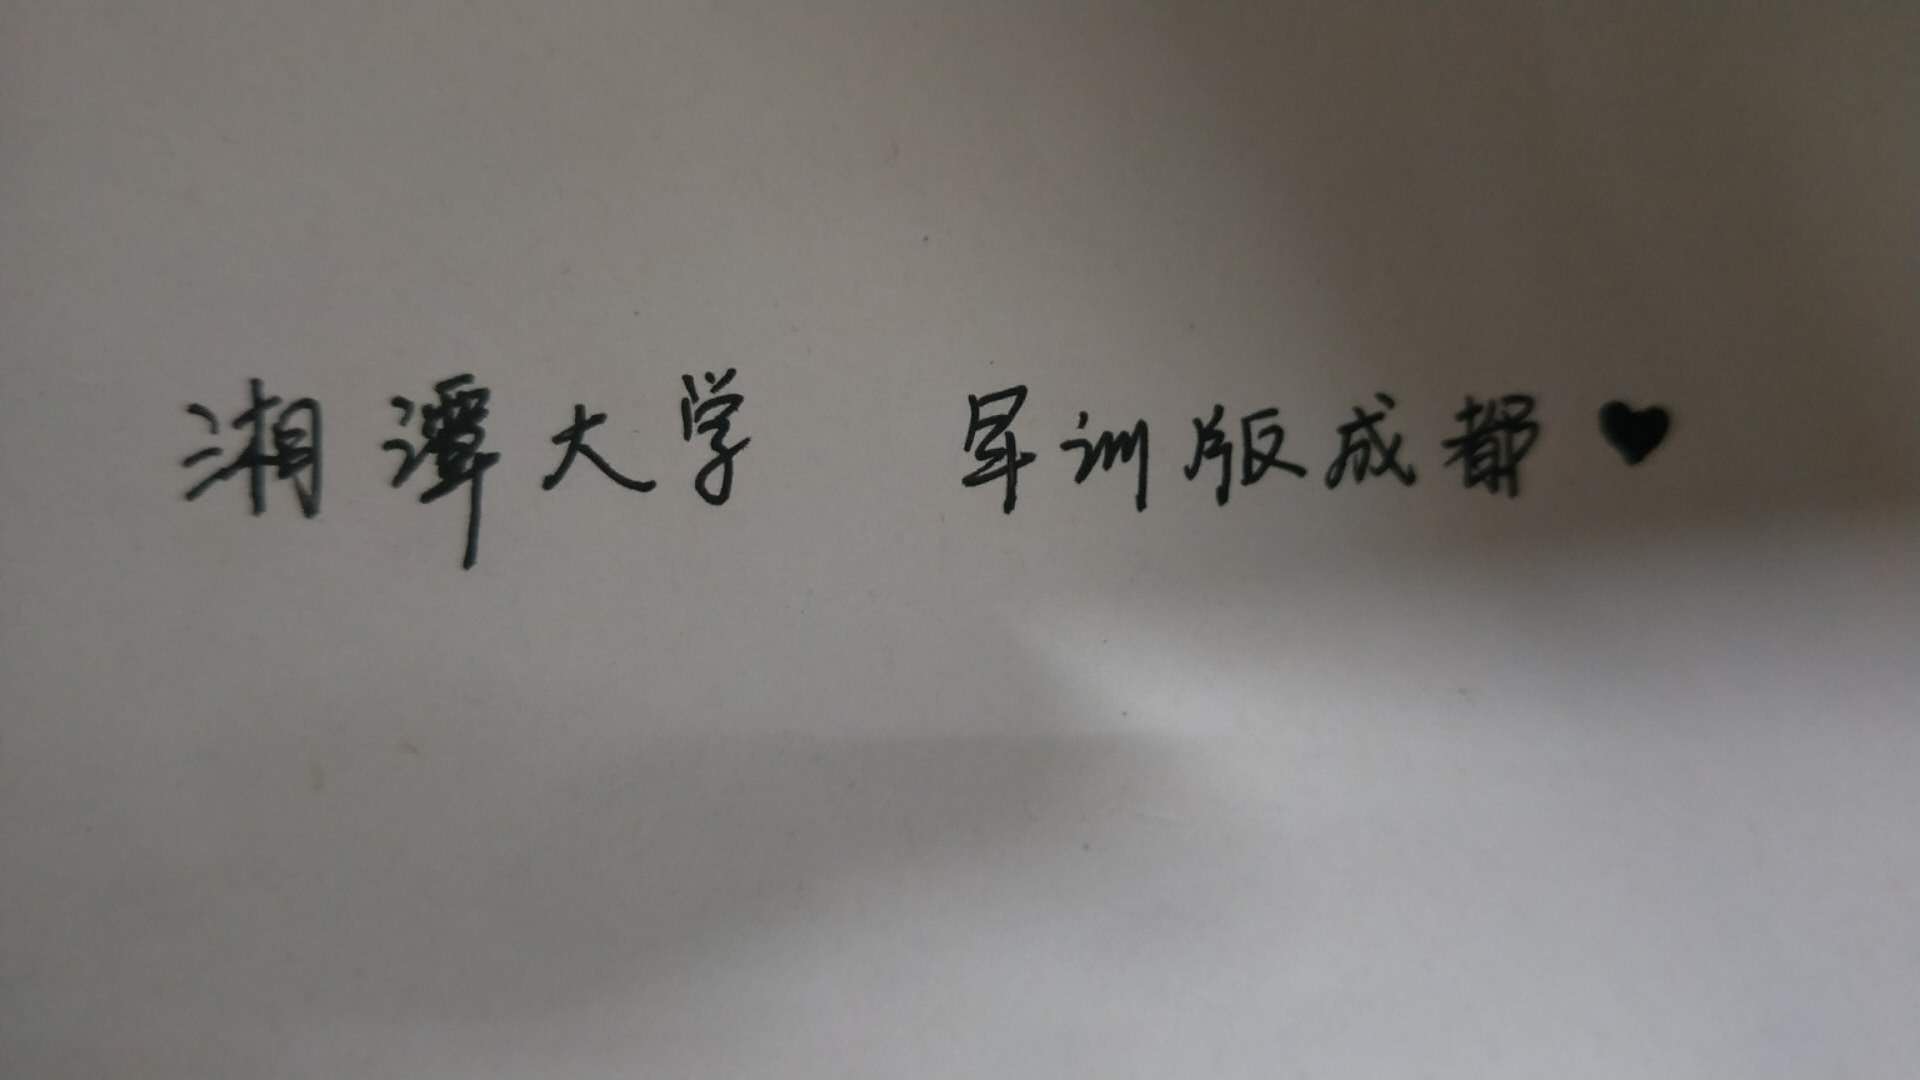 湘潭大学 军训版成都♥